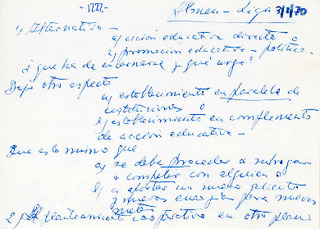 -1222-
- Liga 3/1/70
1) Alternativa -
a) acción educativa directa o
b) promoción educativa - política -
¿que ha de enseñarse y qué urge?
Bajo otro aspecto
a) establecimiento en paralelo de
instituciones o
b) establecimiento en complemento
de acción educativa -
Que es lo mismo que
a) se debe proceder a
o competir con alguien o
b) a aportar un nuevo aliento
y nuevas energías para nuevas
metas
2) planteamiento cooperativo en otro plano